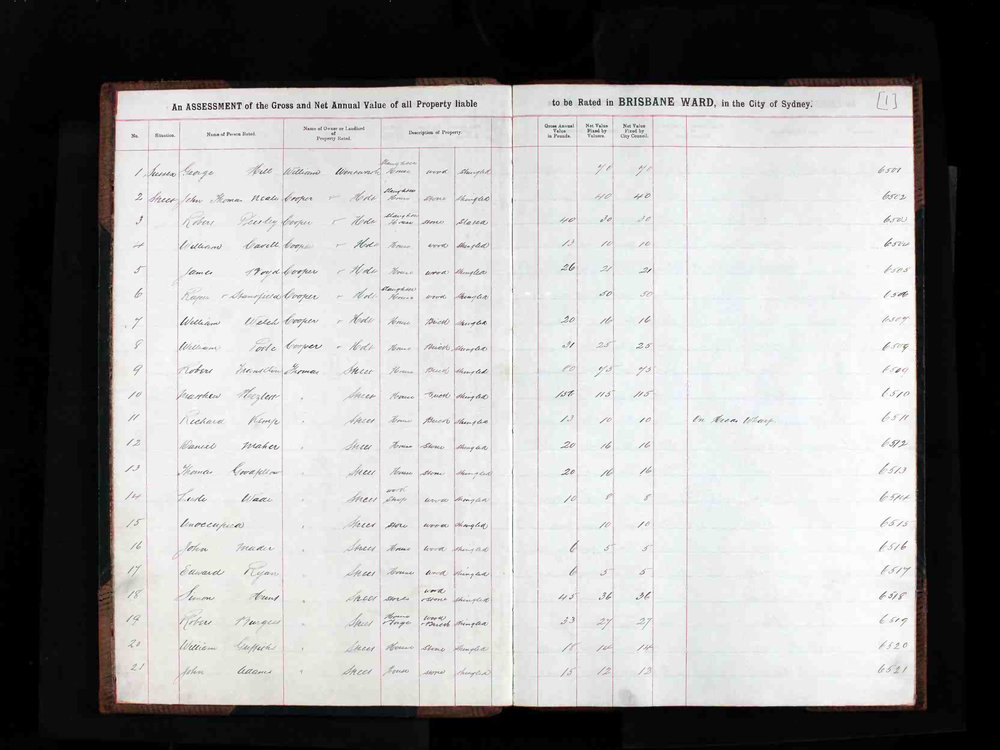 An ASSESSMENT of the Gross and Net Annual Value of all Property liable to be Rated in BRISBANE WARD, in the City of Sydney. [1]
No. Situation. Name of Person Rated. Name of Owner or Landlord of Property Rated. Description of Property. Gross Annual Value in Pounds. Net Value Fixed by Valuers. Net Value Fixed by City Council.
1 Sussex George Hill William House wood Shingled 70 70 6501
2 Street John Thomas Neale Cooper & Holt House stone Shingled 40 40 6502
3 Robert Cooper & Holt House stone Slated 40 30 30 6503
4 William Cavell Cooper & Holt House wood Shingled 13 10 10 6504
5 James Boyd Cooper & Holt House wood Shingled 26 21 21 6505
6 & Stanfield Cooper & Holt House wood Shingled 50 50 6506
7 William Welch Cooper & Holt House Brick Shingled 20 16 16 6507
8 William Toole Cooper & Holt House Brick Shingled 31 25 25 6508
9 Robert Franklin Thomas Street House Brick Shingled 75 75 6509
10 Matthew Hezlett " Street House Brick Shingled 156 115 115 6510
11 Richard Kemp " Street House Brick Shingled 13 10 10 On Wharf 6511
12 Daniel Maher " Street House Stone Shingled 20 16 16 6512
13 Thomas " Street House Stone Shingled 20 16 16 6513
14 Wade " Street work Shop wood Shingled 10 8 8 6514
15 Unoccupied " Street Store wood Shingled 10 10 6515
16 John Meader " Street House wood Shingled 6 5 5 6516
17 Edward Ryan " Street House wood Shingled 6 5 5 6517
18 Simon Hunt " Street Stores wood & stone Shingled 45 36 36 6518
19 Robert Burgess " Street House & Forge wood & Brick Shingled 33 27 27 6519
20 William Griffiths " Street House Stone Shingled 18 14 14 6520
21 John Adams " Street House stone Shingled 15 12 12 6521